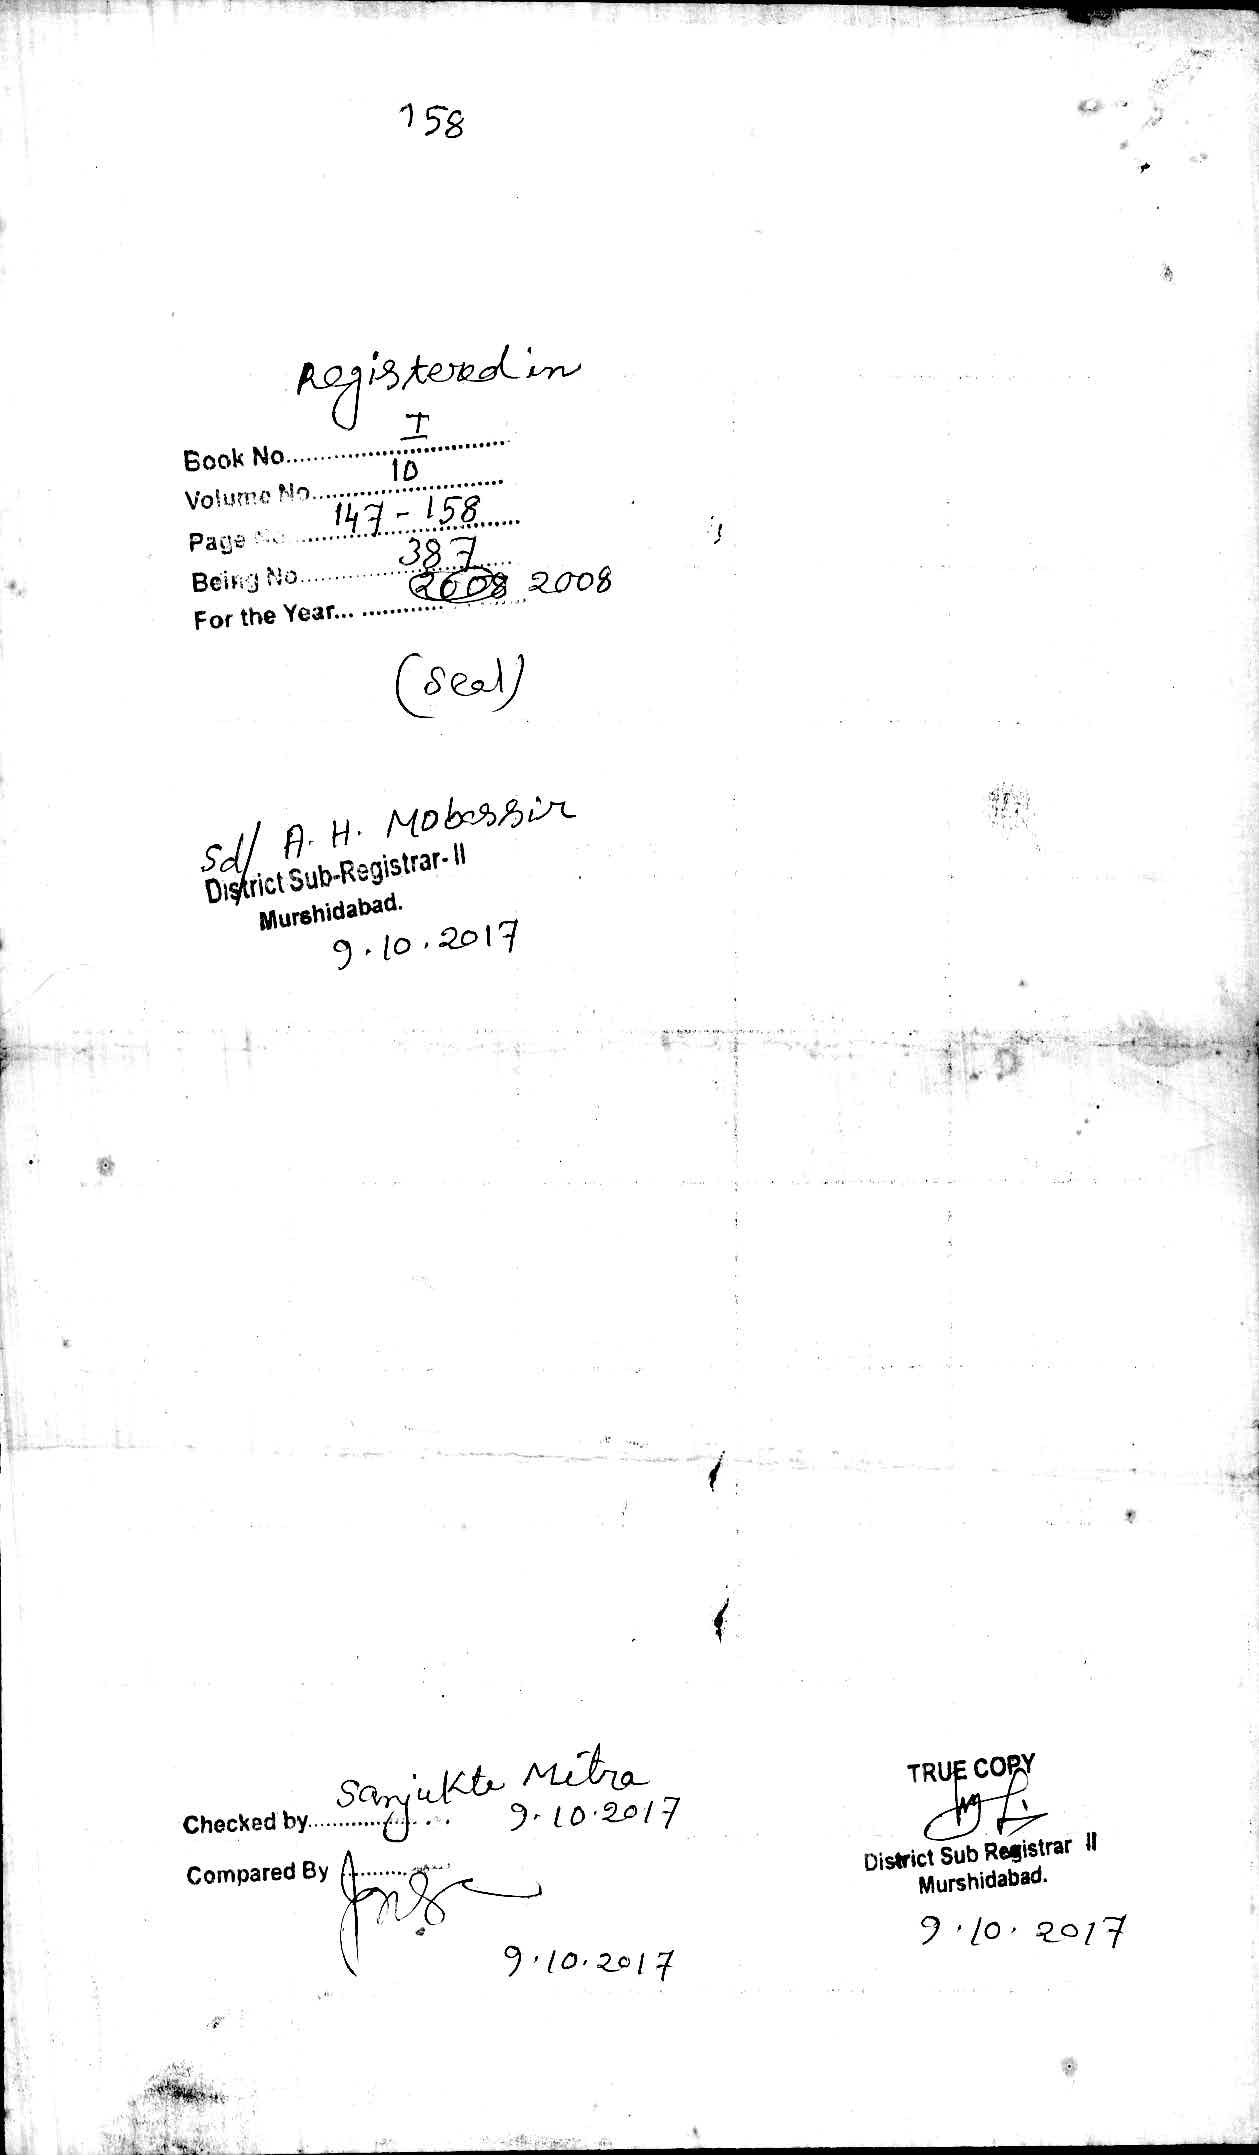 158
Registered in
Book No. I
Volume No. 10
Page No. 147 - 158
Being No. 387
For the Year... 2008 2008
(Seal)
Sd/ A. H. Mobassir
District Sub-Registrar- II
Murshidabad.
9.10.2017
Sanjukta Mitra
Checked by 9.10.2017
Compared By
9.10.2017
TRUE COPY
District Sub Registrar II
Murshidabad.
9.10.2017